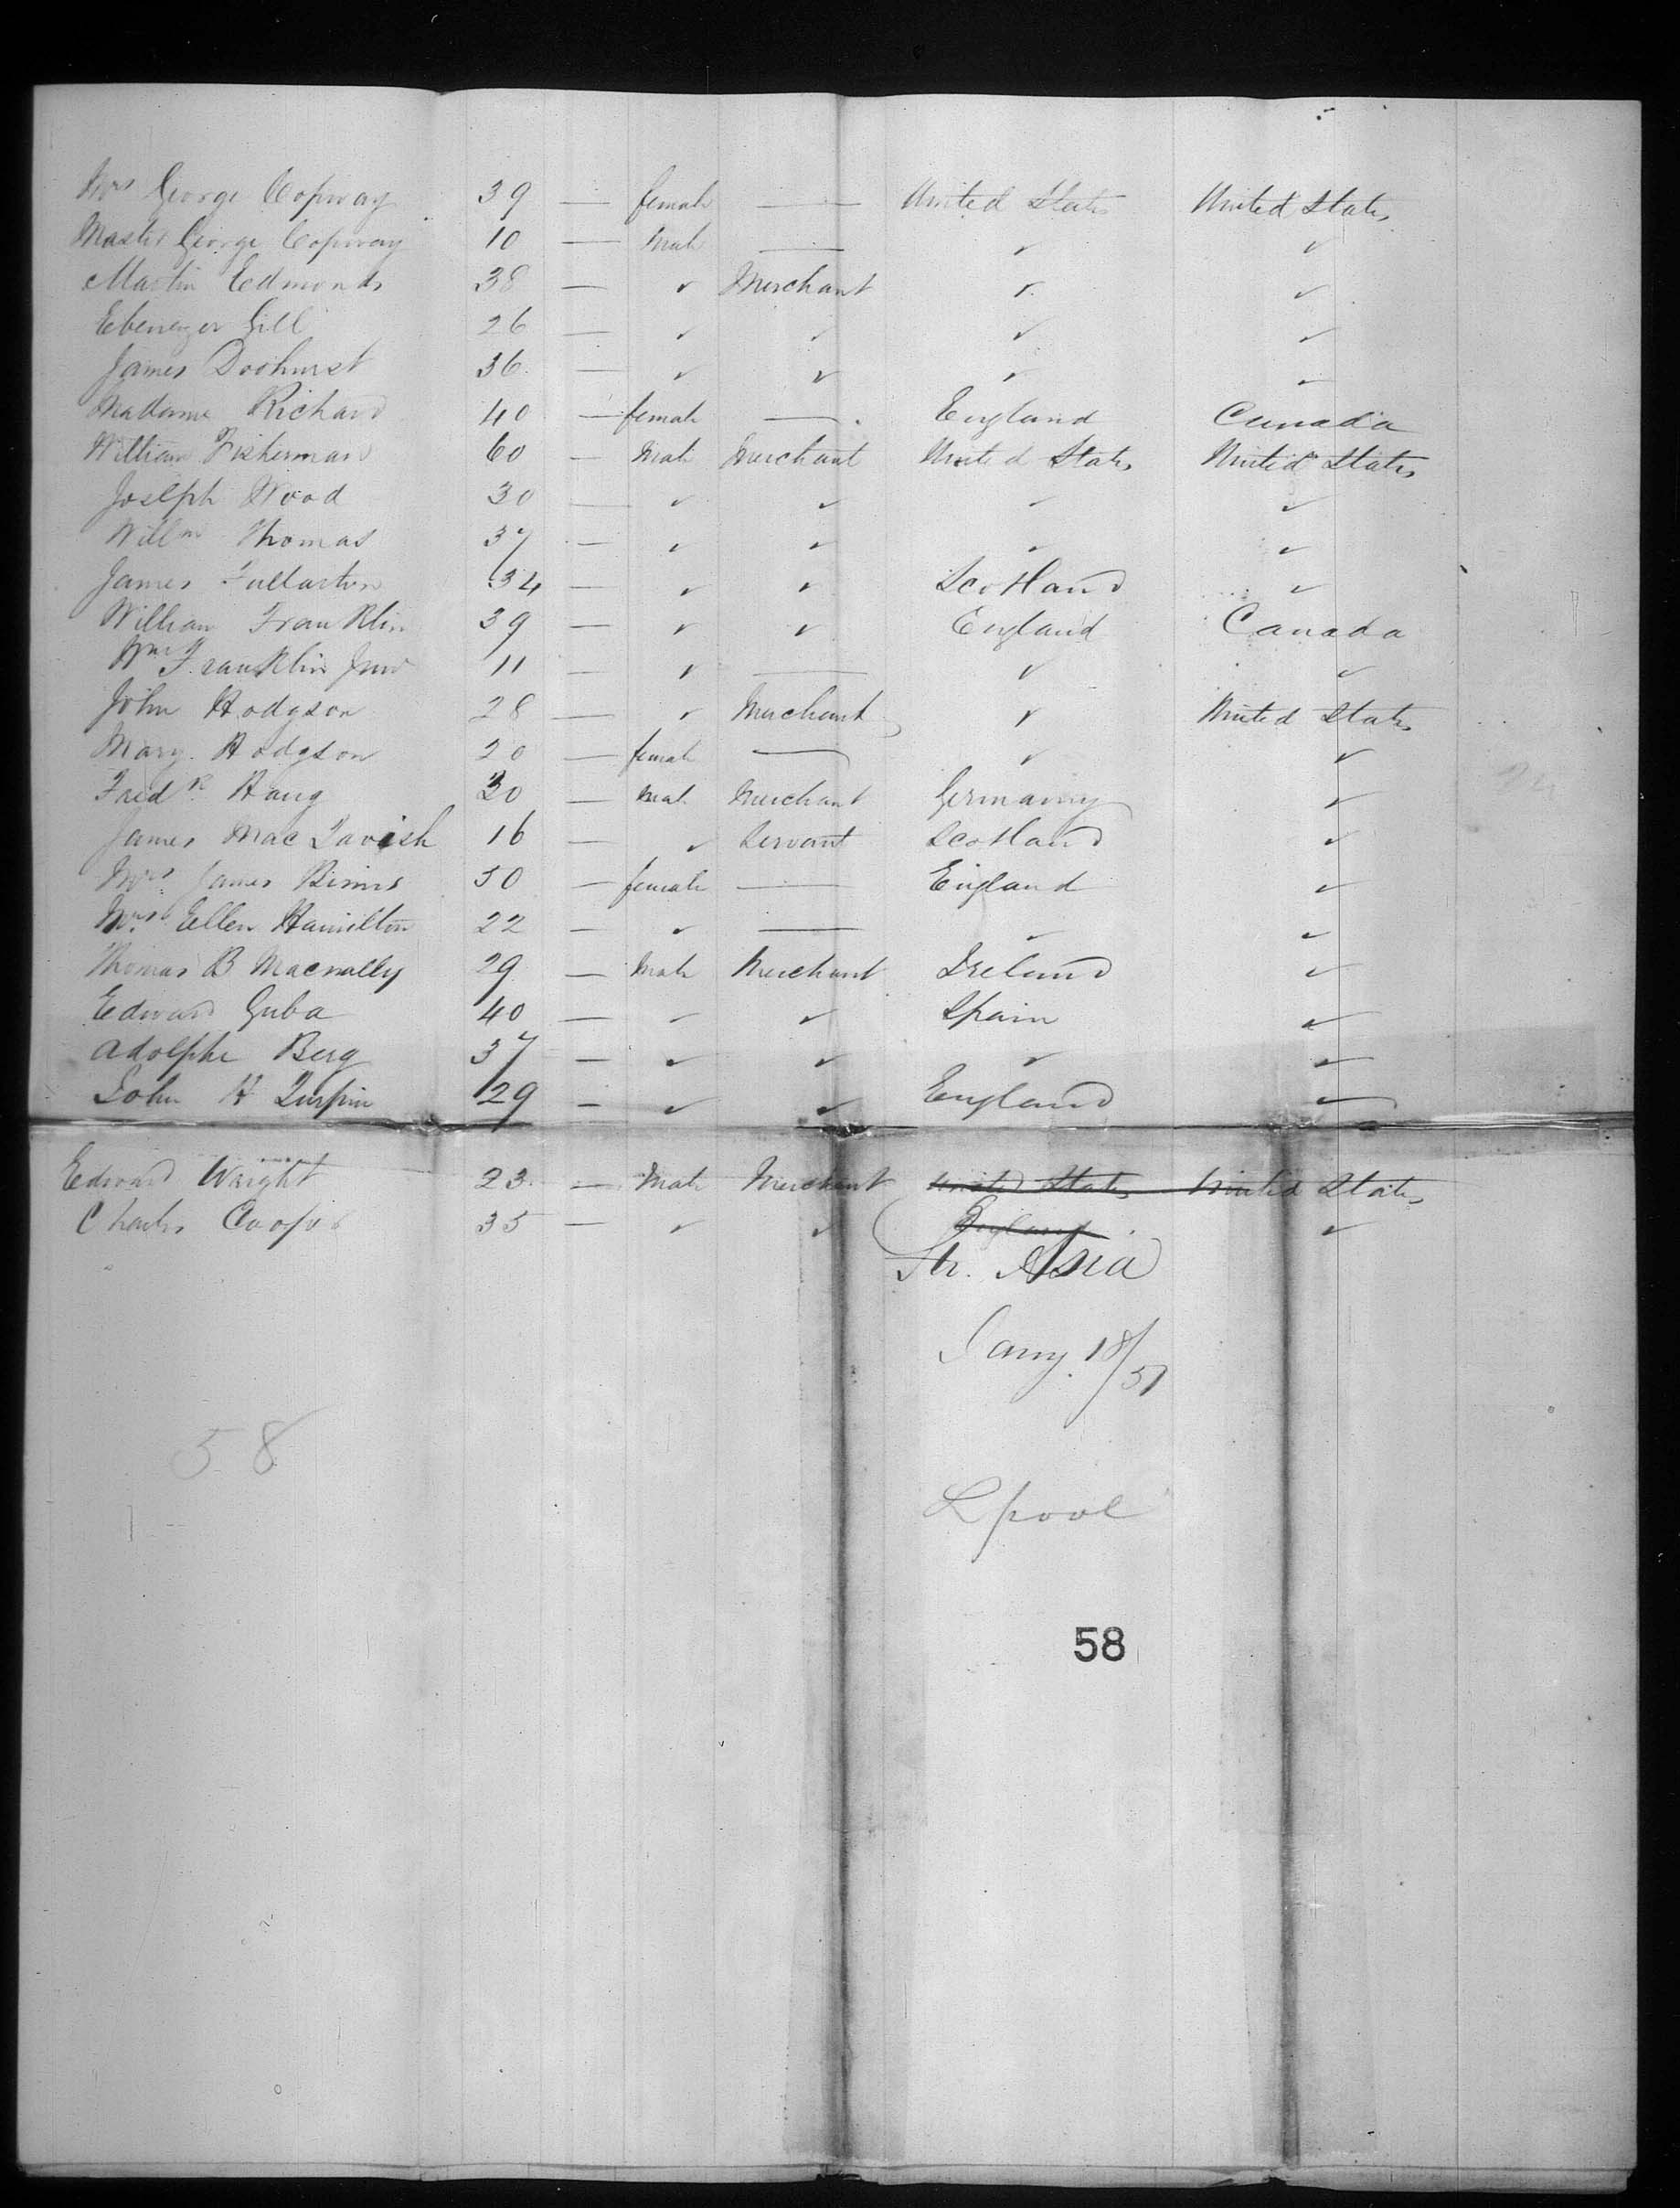 Mrs George Copway 39 — female — United States United States
Master George Copway 10 — Male — ✓ ✓
Martin Edmonds 38 — ✓ Merchant ✓ ✓
Ebenezer Gill 26 — ✓ ✓ ✓ ✓
James Doohurst 36 — ✓ ✓ ✓ ✓
Madame Richard 40 — female — England Canada
William Fisherman 60 — Male Merchant United States United States
Joseph Wood 30 — ✓ ✓ ✓ ✓
Willm Thomas 37 — ✓ ✓ ✓ ✓
James Fullarton 34 — ✓ ✓ Scotland ✓
William Franklin 39 — ✓ ✓ England Canada
Wm Franklin Junr 11 — ✓ — ✓ ✓
John Hodgson 28 — ✓ Merchant ✓ United States
Mary Hodgson 20 — female — ✓ ✓
Fredk Haug 30 — Male Merchant Germany ✓
James Mac Tavish 16 — ✓ Servant Scotland ✓
Mrs James Binns 30 — female — England ✓
Mrs Ellen Hamilton 22 — ✓ — ✓ ✓
Thomas B Macnally 29 — Male Merchant Ireland ✓
Edward Guba 40 — ✓ ✓ Spain ✓
Adolphe Berg 37 — ✓ ✓ ✓ ✓
John H Turpin 29 — ✓ ✓ England ✓
Edward Wright 23 — Male Merchant United States United States
Charles Cooper 35 — ✓ ✓ England ✓
Str. Asia
Jany. 18/51
58
Lpool
58